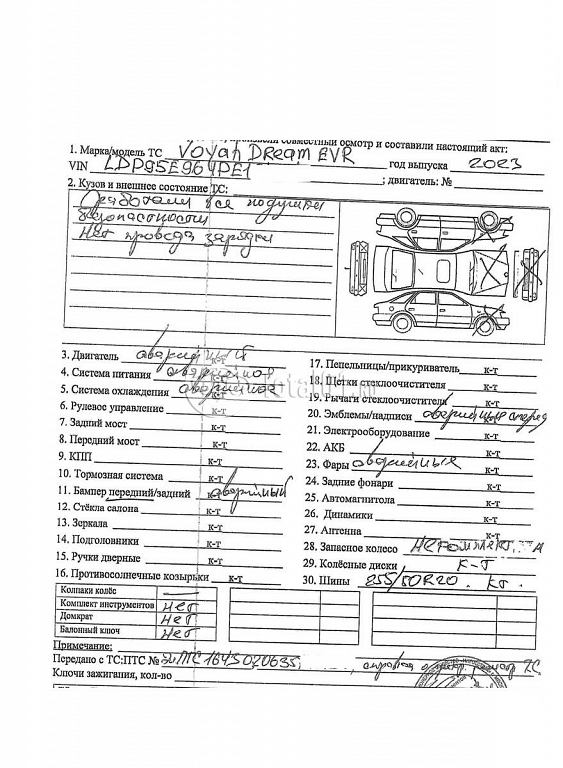 совместный осмотр и составили настоящий акт:
1. Марка/модель ТС Voyah Dream EVR
VIN LDP95E964PE1 год выпуска 2023
; двигатель: №
2. Кузов и внешнее состояние ТС:
Сработали все подушки
безопасности
нет провода зарядки
3. Двигатель аварийный к-т
4. Система питания аварийная к-т
5. Система охлаждения аварийная к-т
6. Рулевое управление к-т
7. Задний мост к-т
8. Передний мост к-т
9. КПП к-т
10. Тормозная система к-т
11. Бампер передний/задний аварийный
12. Стёкла салона к-т
13. Зеркала к-т
14. Подголовники к-т
15. Ручки дверные к-т
16. Противосолнечные козырьки к-т
17. Пепельницы/прикуриватель к-т
18. Щетки стеклоочистителя к-т
19. Рычаги стеклоочистителя к-т
20. Эмблемы/надписи аварийные спереди
21. Электрооборудование к-т
22. АКБ к-т
23. Фары аварийные к-т
24. Задние фонари к-т
25. Автомагнитола к-т
26. Динамики к-т
27. Антенна к-т
28. Запасное колесо
29. Колёсные диски к-т
30. Шины 255/50R20 кт.
Колпаки колёс —
Комплект инструментов нет
Домкрат нет
Балонный ключ нет
Примечание:
Передано с ТС:ПТС № ЭПТС 1643020635 справка о ТС
Ключи зажигания, кол-во